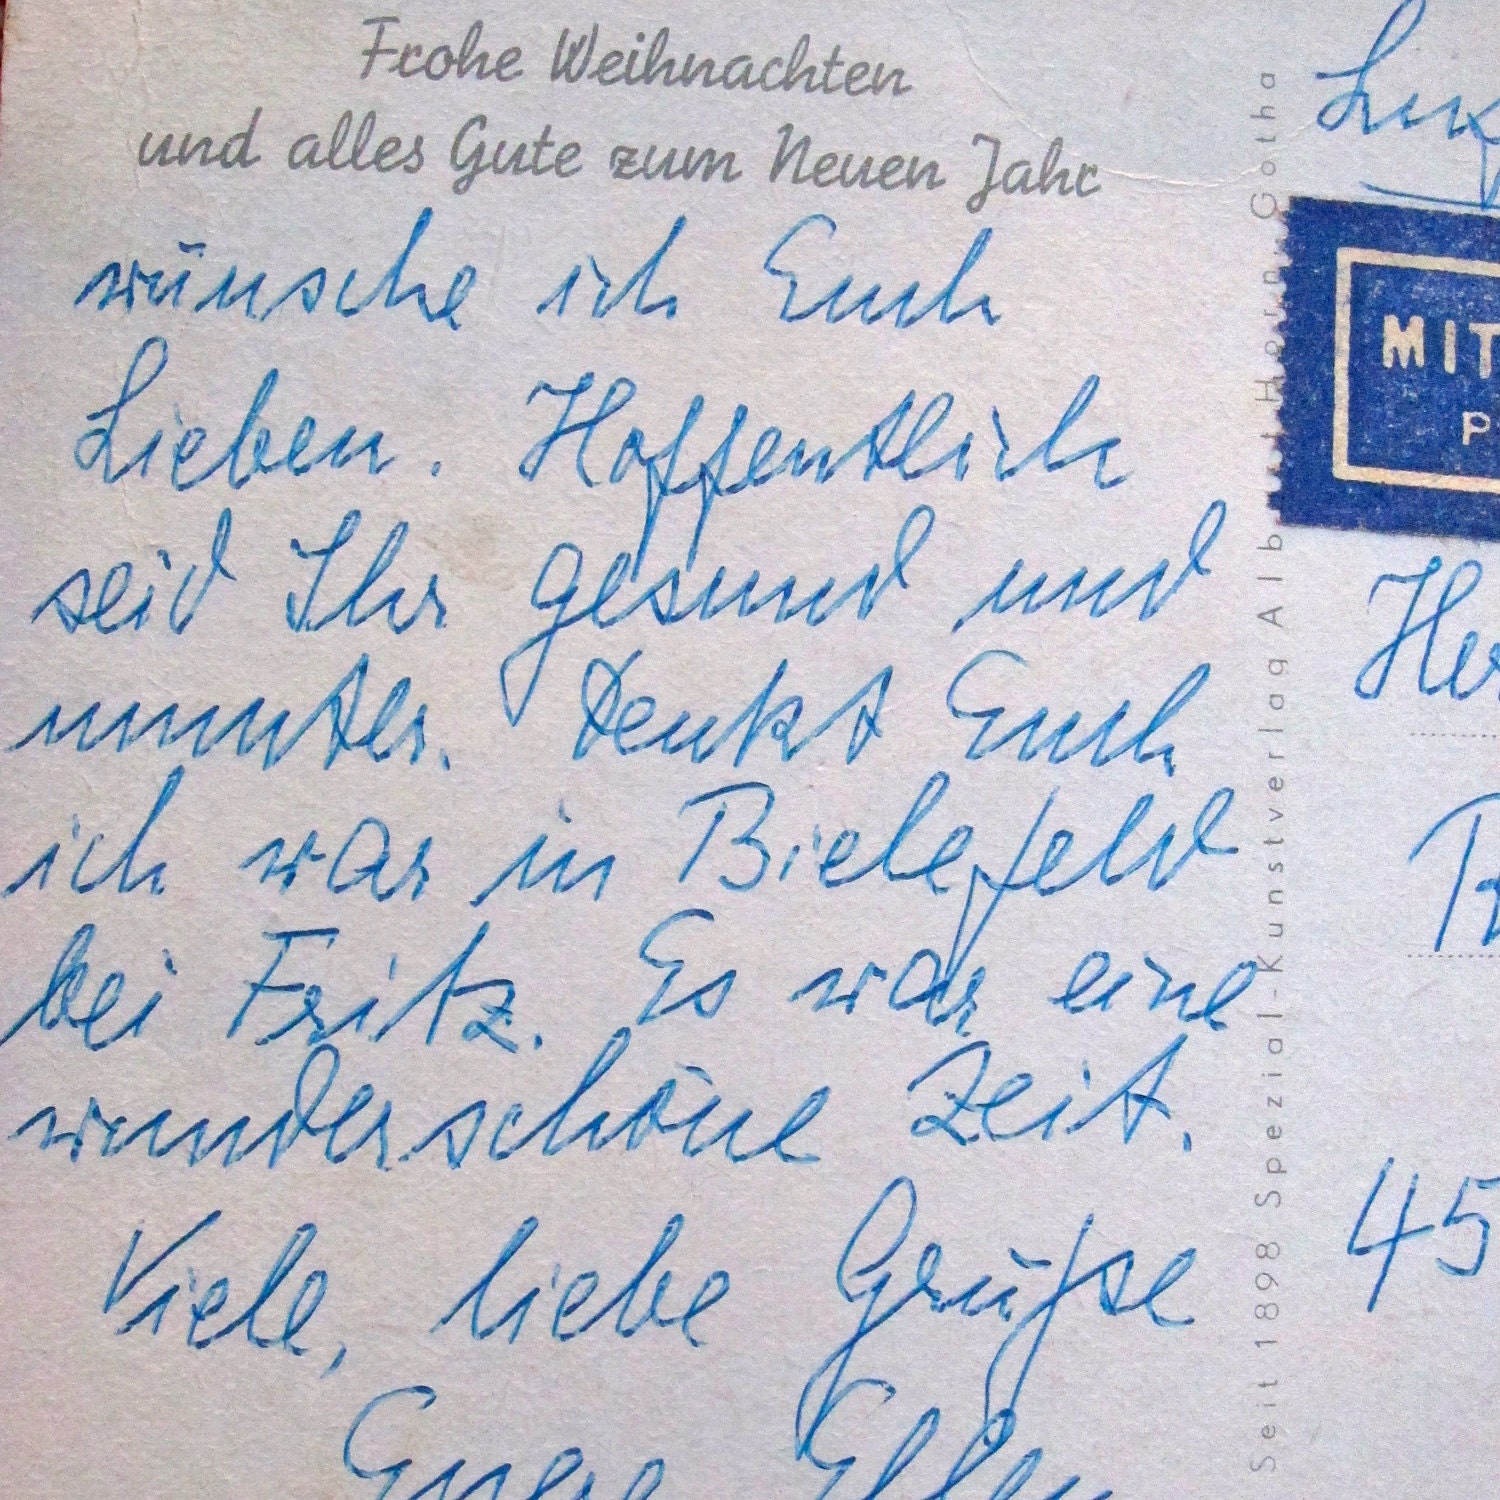 Frohe Weihnachten
und alles Gute zum Neuen Jahr
wünsche ich Euch
Lieben. Hoffentlich
seid Ihr gesund und
munter. Denkt Euch
ich war in Bielefeld
bei Fritz. Es war eine
wunderschöne Zeit.
Viele, liebe Grüße
Eure Ellen
Seit 1898 Spezial-Kunstverlag Alb Horn, Gotha
MIT
P
45